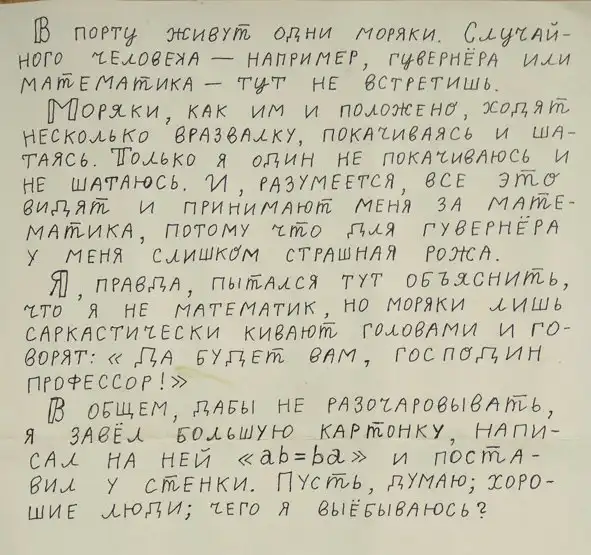 В порту живут одни моряки. Случай-
ного человека — например, гувернёра или
математика — тут не встретишь.
Моряки, как им и положено, ходят
несколько вразвалку, покачиваясь и ша-
таясь. Только я один не покачиваюсь и
не шатаюсь. И, разумеется, все это
видят и принимают меня за мате-
матика, потому что для гувернёра
у меня слишком страшная рожа.
Я, правда, пытался тут объяснить,
что я не математик, но моряки лишь
саркастически кивают головами и го-
ворят: « Да будет вам, господин
профессор!»
В общем, дабы не разочаровывать,
я завёл большую картонку, напи-
сал на ней «ab=ba» и поста-
вил у стенки. Пусть, думаю; хоро-
шие люди; чего я выёбываюсь?